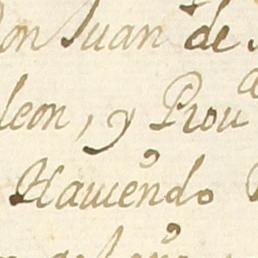 Don Juan de
leon, y Prou^a
Hauiendo